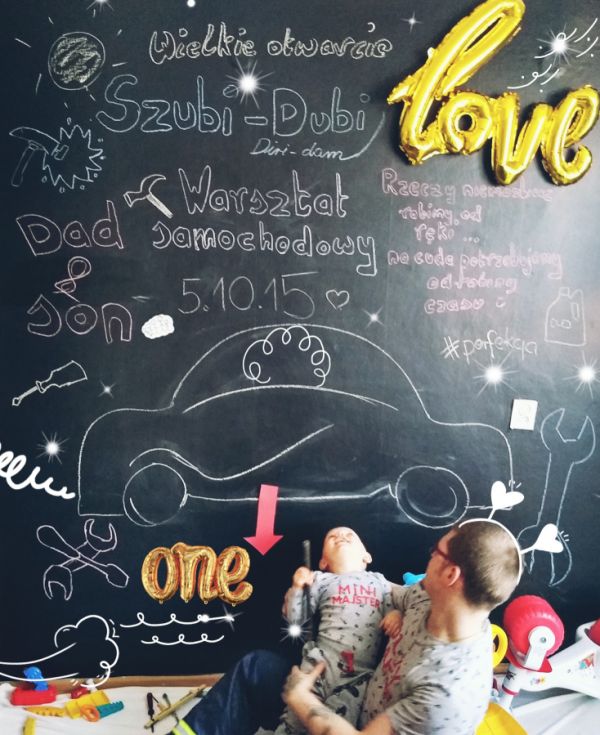 Wielkie otwarcie
love
Szubi-Dubi
Diri-dam
Warsztat
samochodowy
Dad
&
son
5.10.15
Rzeczy niemożliwe
robimy od
ręki ...
na cuda potrzebujemy
odrobiny
czasu i
#perfekcja
one
MINI
MAJSTER